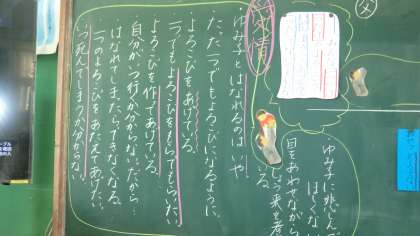 父
ゆみ子に悲しんで
ほしくない
目をあわせながら
来を考
いる。
心情
ゆみ子とはなれるのはいや。
・たった一つでもよろこびになるように、
よろこびをあげている。
一つでもよろこびをもらってもらいたい。
よろこびを作ってあげている。
・自分がいつ行くか分からないだから…
はなれてしまったらできなくなる。
・一つのよろこびをあたえてあげたい。
いつ死んでしまうか分からない。